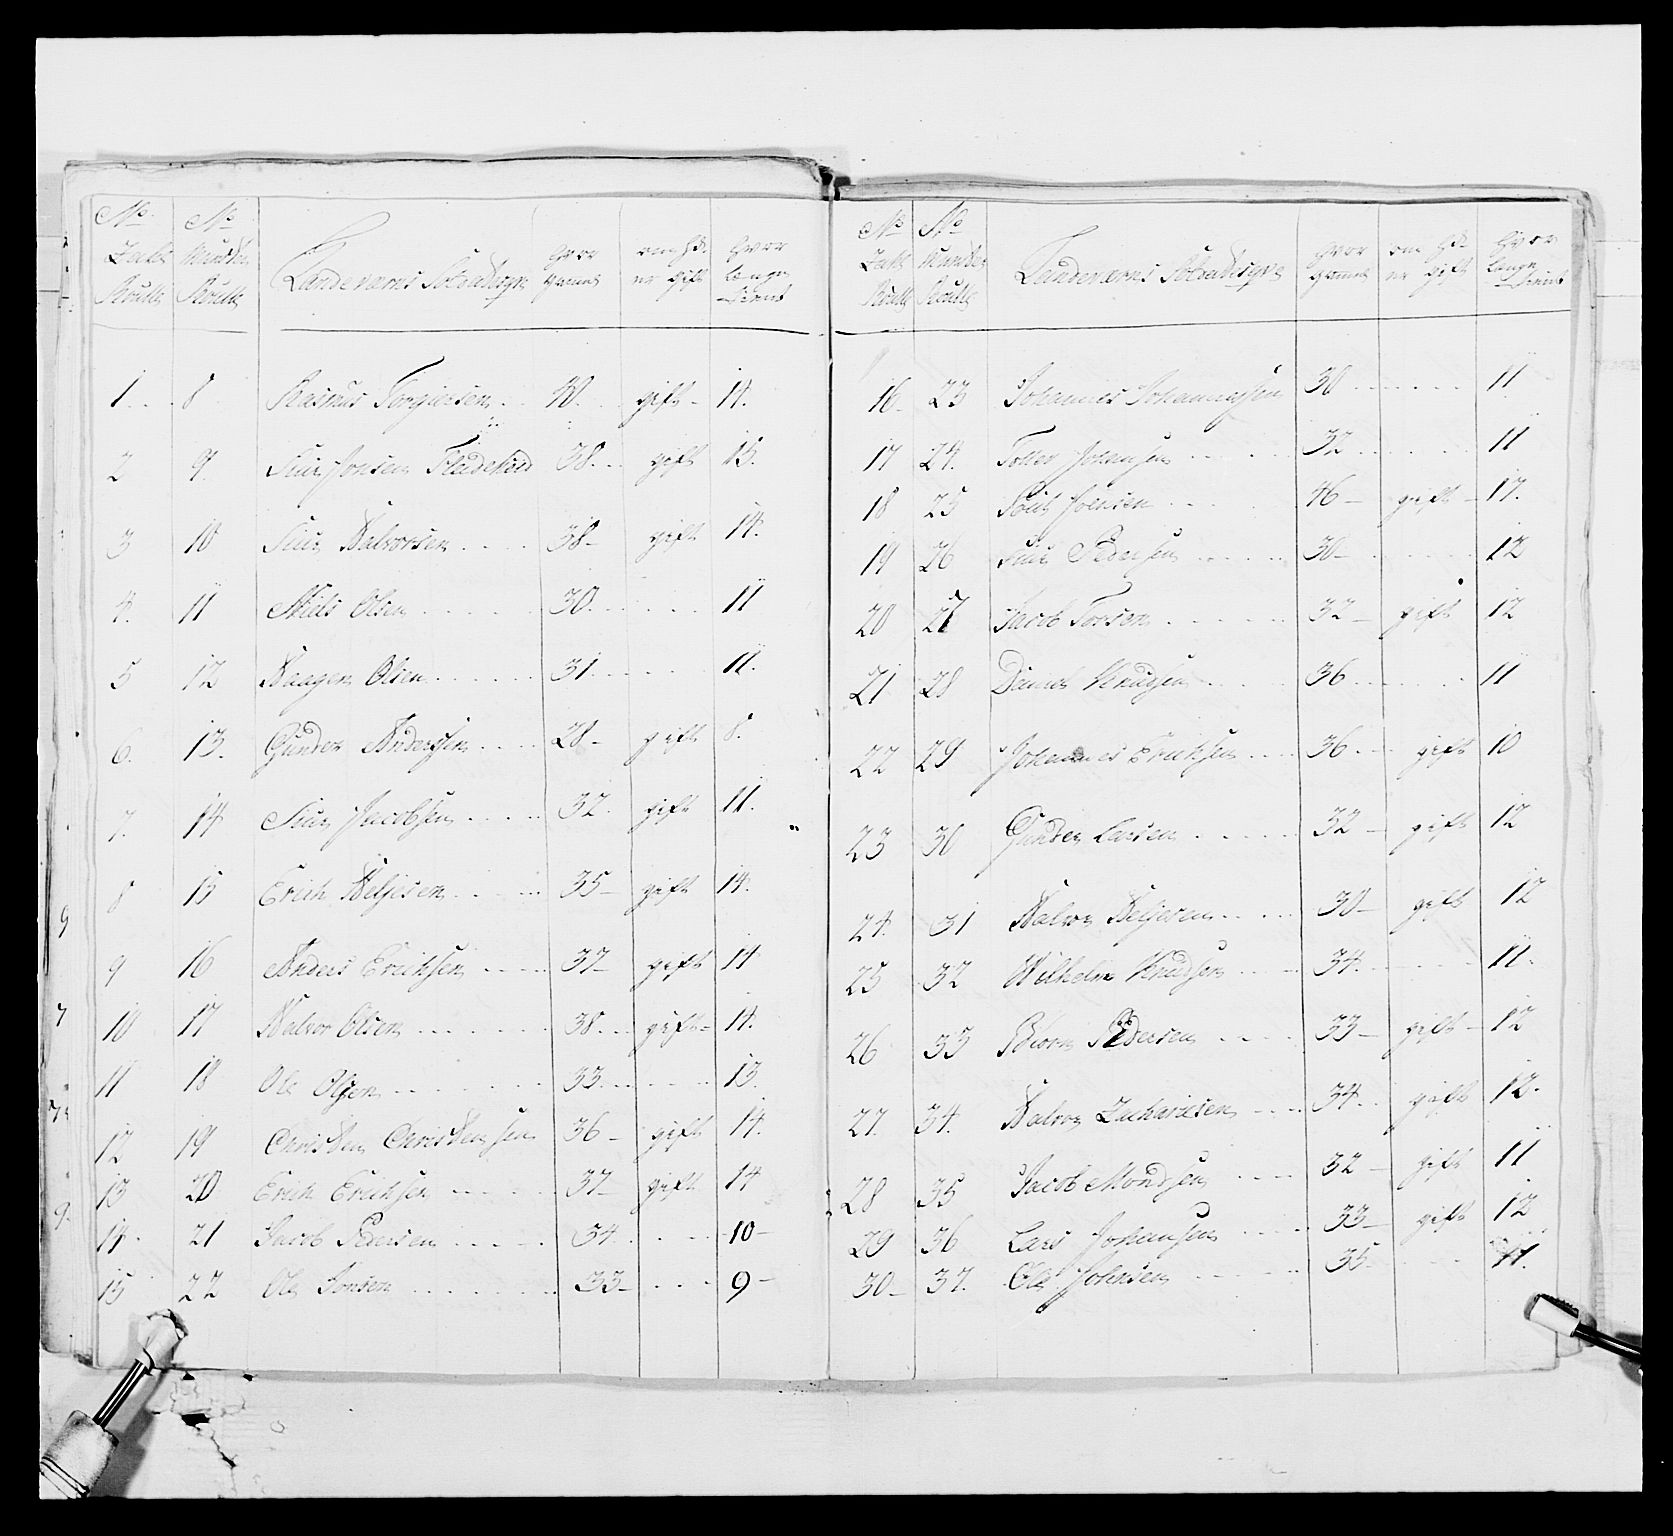 No No Landeværns Soldadesque hvor om hd. hvor
gammel er gift længe tient
1 8 Rasmus Torgiersen 40 gift 14.
2 9 Siur Jonsen Fladekild 38 gift 15.
3 10 Siur Halvorsen 38 gift 14.
4. 11 Niels Olsen 30 11
5 12 Haagen Olsen 31 11.
6. 13. Gunder Anderssen 28 gift 8.
7. 14 Siur Jacobsen 32 gift 11.
8 15 Erich Keljesen 35 gift 14.
9 16 Anders Erichsen 37 gift 14
10 17 Halvor Olsen 38 gift 14.
11 18 Ole Olsen 33 13.
12 19 Christen Christensen 36 gift 14.
13 20 Erich Erichsen 37 gift 14
14. 21 Jacob Pedersen 34 10
15 22 Ole Tonsen 33 9
No No Landeværns Soldadesque hvor om hd. hvor
gammel er gift længe tient
16. 23 Johannes Johannessen 30 11
17 24. Tollev Johansen 32 11
18 25 Poul Joensen 46 gift 17.
19 26 Siur Pedersen 30 12
20 27 Jacob Torsen 32 gift 12
21 28 Daniel Knudsen 36 11
22 29 Johannes Erichsen 36 gift 10
23 30 Gunder Larsen 32 gift 12
24. 31 Halvor Keljesen 30 gift 12
25 32 Wilhelm Knudsen 34. 11.
26 33 Biørn Pedersen 33 gift 12
27. 34. Halvor Zachariesen 34 gift 12.
28 35 Jacob Mondsen 32 gift 11
29 36 Lars Johansen 33 gift 12
30 37. Ole Johnsen 35 11.